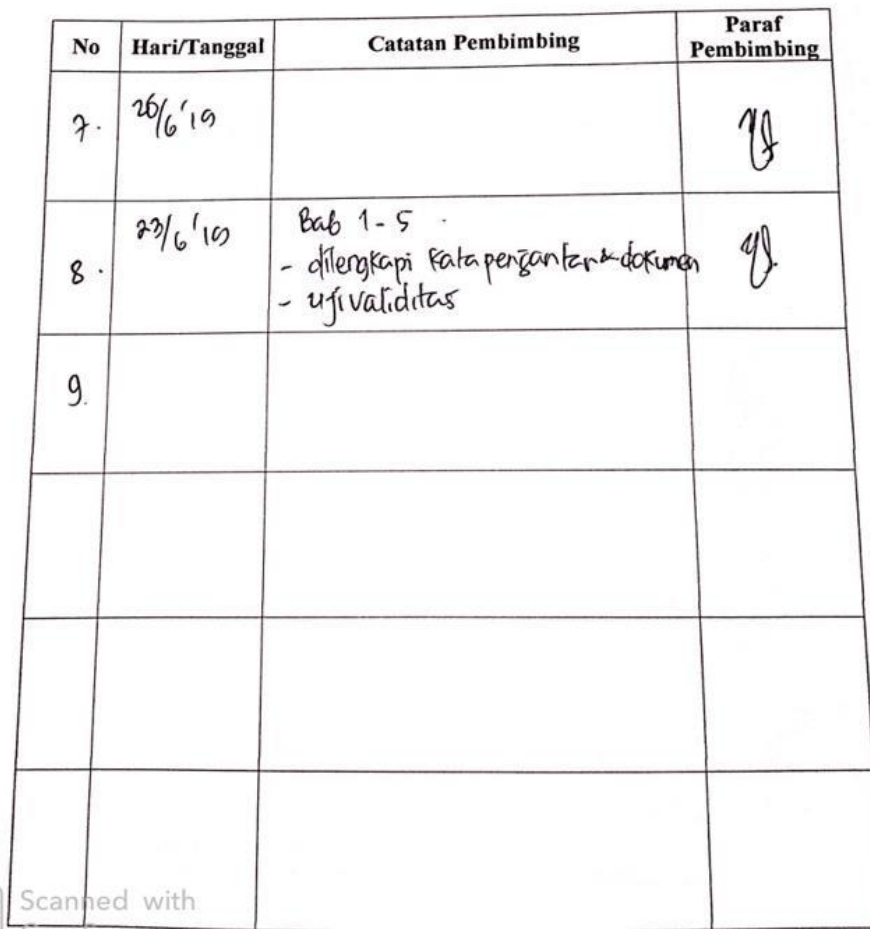 No Hari/Tanggal Catatan Pembimbing Paraf Pembimbing
7. 26/6'19
8. 23/6'19 Bab 1-5
- dilengkapi kata pengantar & dokumen
- uji validitas
9.
Scanned with